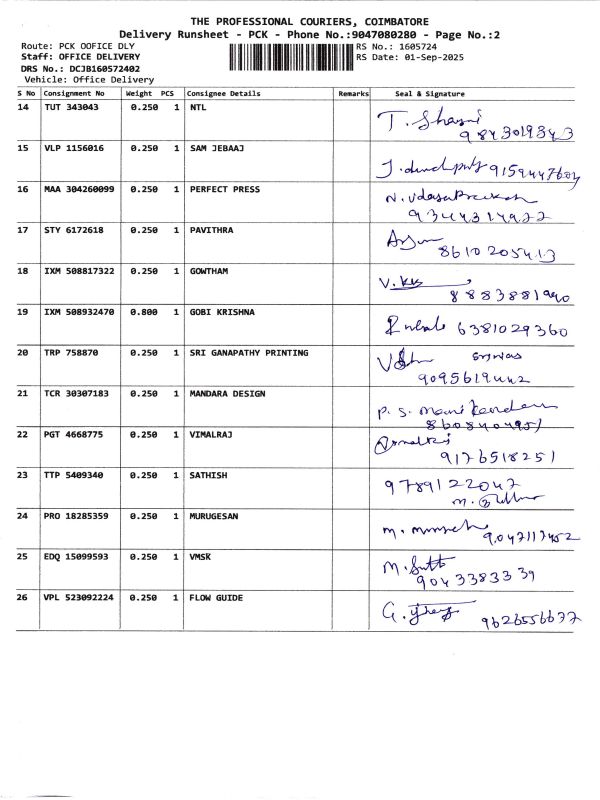 THE PROFESSIONAL COURIERS, COIMBATORE
Delivery Runsheet - PCK - Phone No.:9047080280 - Page No.:2
Route: PCK OOFICE DLY RS No.: 1605724
Staff: OFFICE DELIVERY RS Date: 01-Sep-2025
DRS No.: DCJB160572402
Vehicle: Office Delivery
S No Consignment No Weight PCS Consignee Details Remarks Seal & Signature
14 TUT 343043 0.250 1 NTL
T. Shasni
9843019343
15 VLP 1156016 0.250 1 SAM JEBAAJ
9159447604
16 MAA 304260099 0.250 1 PERFECT PRESS
N. Udayaprakash
9344314922
17 STY 6172618 0.250 1 PAVITHRA
8610205413
18 IXM 508817322 0.250 1 GOWTHAM
8883881990
19 IXM 508932470 0.800 1 GOBI KRISHNA
6381029360
20 TRP 758870 0.250 1 SRI GANAPATHY PRINTING
9095619442
21 TCR 30307183 0.250 1 MANDARA DESIGN
P. S. Manikandan
8608404951
22 PGT 4668775 0.250 1 VIMALRAJ
9176518251
23 TTP 5409340 0.250 1 SATHISH
9789122047
24 PRO 18285359 0.250 1 MURUGESAN
9047117452
25 EDQ 15099593 0.250 1 VMSK
9043383339
26 VPL 523092224 0.250 1 FLOW GUIDE
9626556677